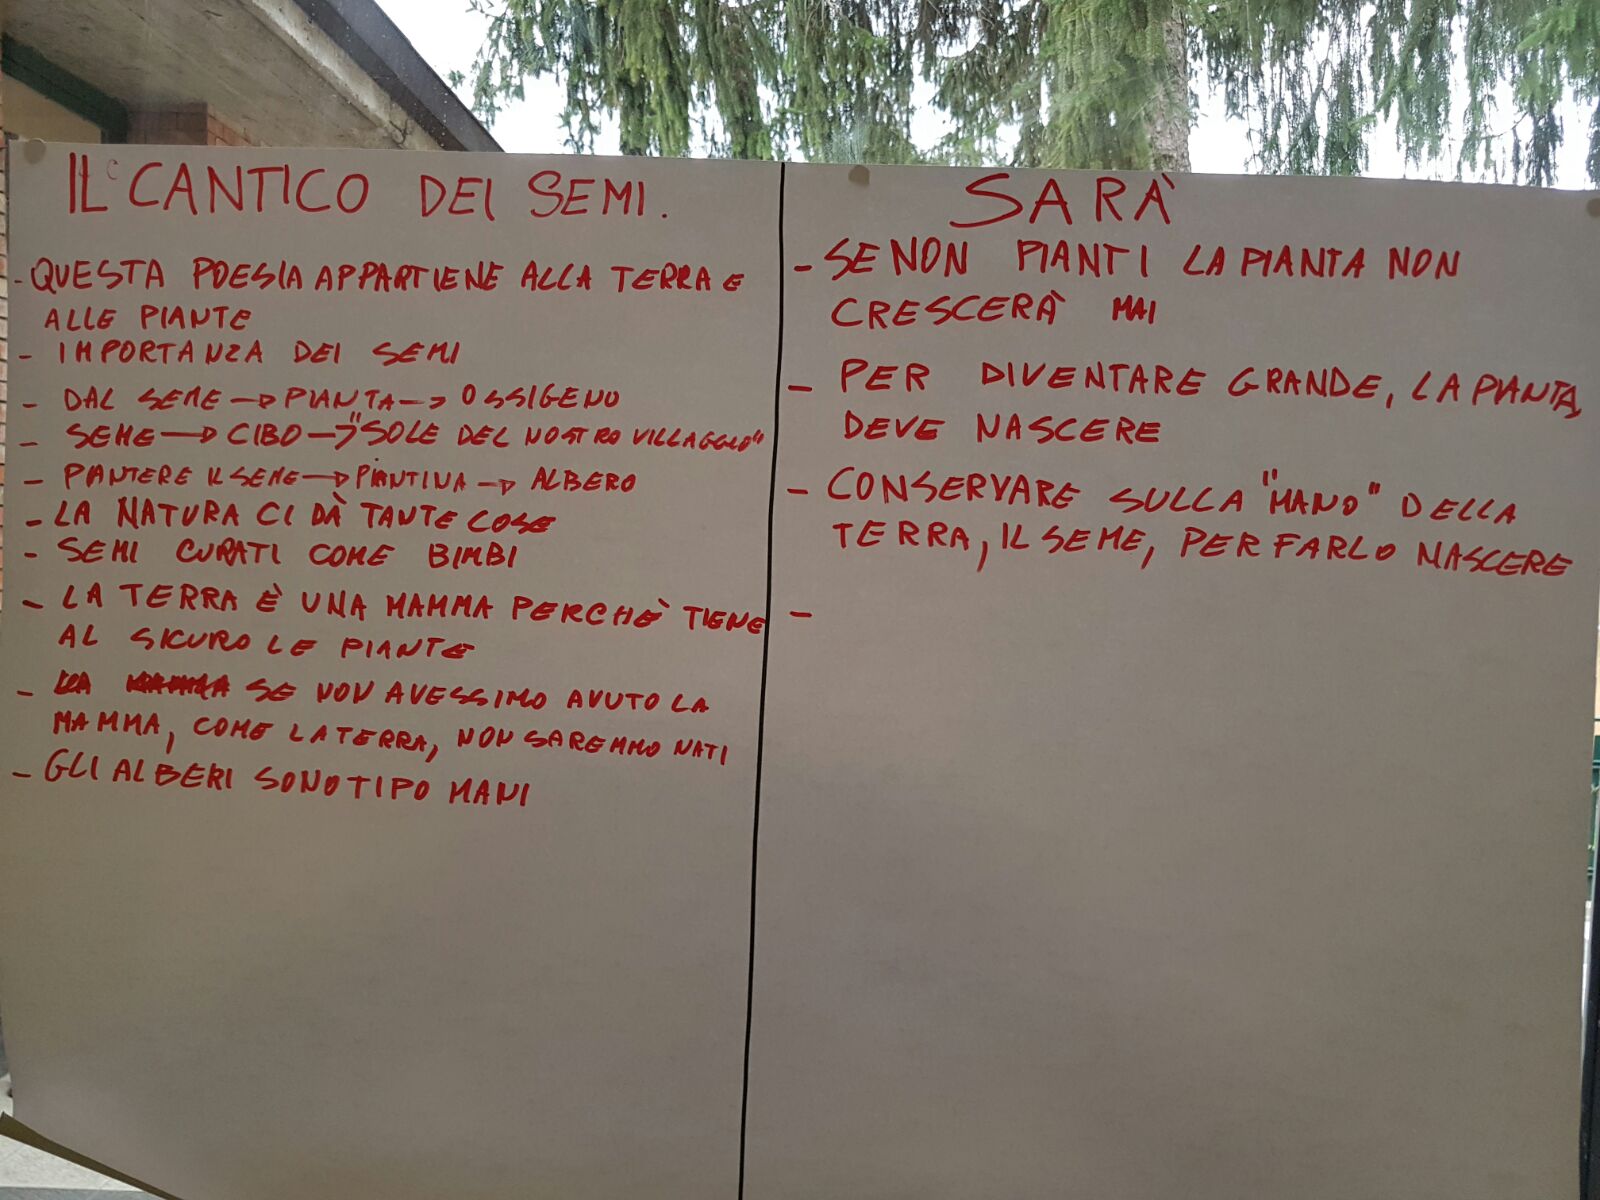 IL CANTICO DEI SEMI.
- QUESTA POESIA APPARTIENE ALLA TERRA E
ALLE PIANTE
- IMPORTANZA DEI SEMI
- DAL SEME → PIANTA → OSSIGENO
- SEME → CIBO → "SOLE DEL NOSTRO VILLAGGIO"
- PIANTERE IL SEME → PIANTINA → ALBERO
- LA NATURA CI DÀ TANTE COSE
- SEMI CURATI COME BIMBI
- LA TERRA È UNA MAMMA PERCHÈ TIENE
AL SICURO LE PIANTE
- SE NON AVESSIMO AVUTO LA
MAMMA, COME LA TERRA, NON SAREMMO NATI
- GLI ALBERI SONO TIPO MANI
SARÀ
- SE NON PIANTI LA PIANTA NON
CRESCERÀ MAI
- PER DIVENTARE GRANDE, LA PIANTA,
DEVE NASCERE
- CONSERVARE SULLA "MANO" DELLA
TERRA, IL SEME, PER FARLO NASCERE
-